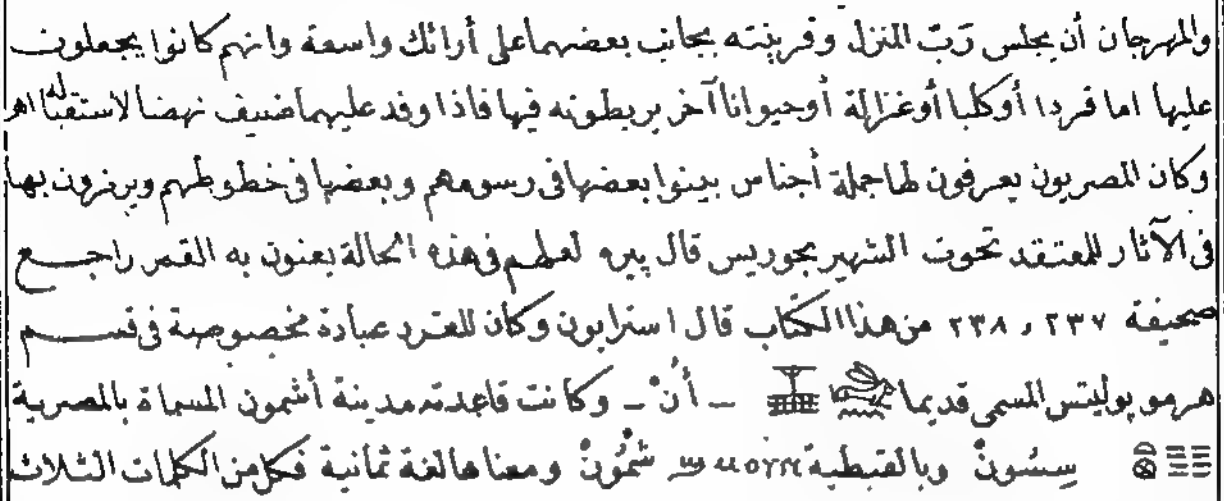 والمهرجان أن يجلس رَبّ المنزل وقرينته بجانب بعضهما على أرائك واسعة وانهم كانوا يجعلون
عليها اما قردا أو كلبا أو غزالة أو حيوانا آخر يربطونه فيها فاذا وفد عليهما ضيف نهضا لاستقباله اهـ
وكان المصريون يعرفون لها جملة أجناس بينوا بعضها فى رسومهم وبعضها فى خطوطهم ويرمزون بها
فى الآثار للمعتقد تحوت الشهير بجوريس قال پيره لعلهم فى هذه الحالة يعنون به القمر راجــع
صحيفة ٢٣٧ و ٢٣٨ من هذا الكتاب قال استرابون وكان للقرد عبادة مخصوصة فى قســم
هرموپوليتس المسمى قديما ـ أُنْ ـ وكانت قاعدته مدينة أشمون المسماة بالمصرية
سِسُونْ وبالقبطية شمُونْ ومعناها لغة ثمانية فكل من الكلمات الثلاث